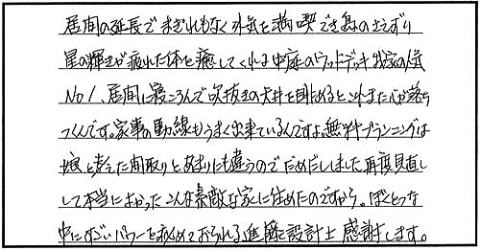 居間の延長でまぎれもなく外気を満喫でき鳥のさえずり
星の輝きが疲れた体を癒してくれる中庭のウッドデッキ我家の人気
No1、居間に寝ころんで吹抜きの天井を眺めるとこれまた心が落ち
つくんです。家事の動線もうまく出来ているんですよ。無料プランニングは
娘と考えた間取りとあまりにも違うのでだめだししました。再度見直し
して本当によかったこんな素敵な家に住めたのですから。ぼくとつな
中にすごいパワーを秘めておられる進藤設計士 感謝します。